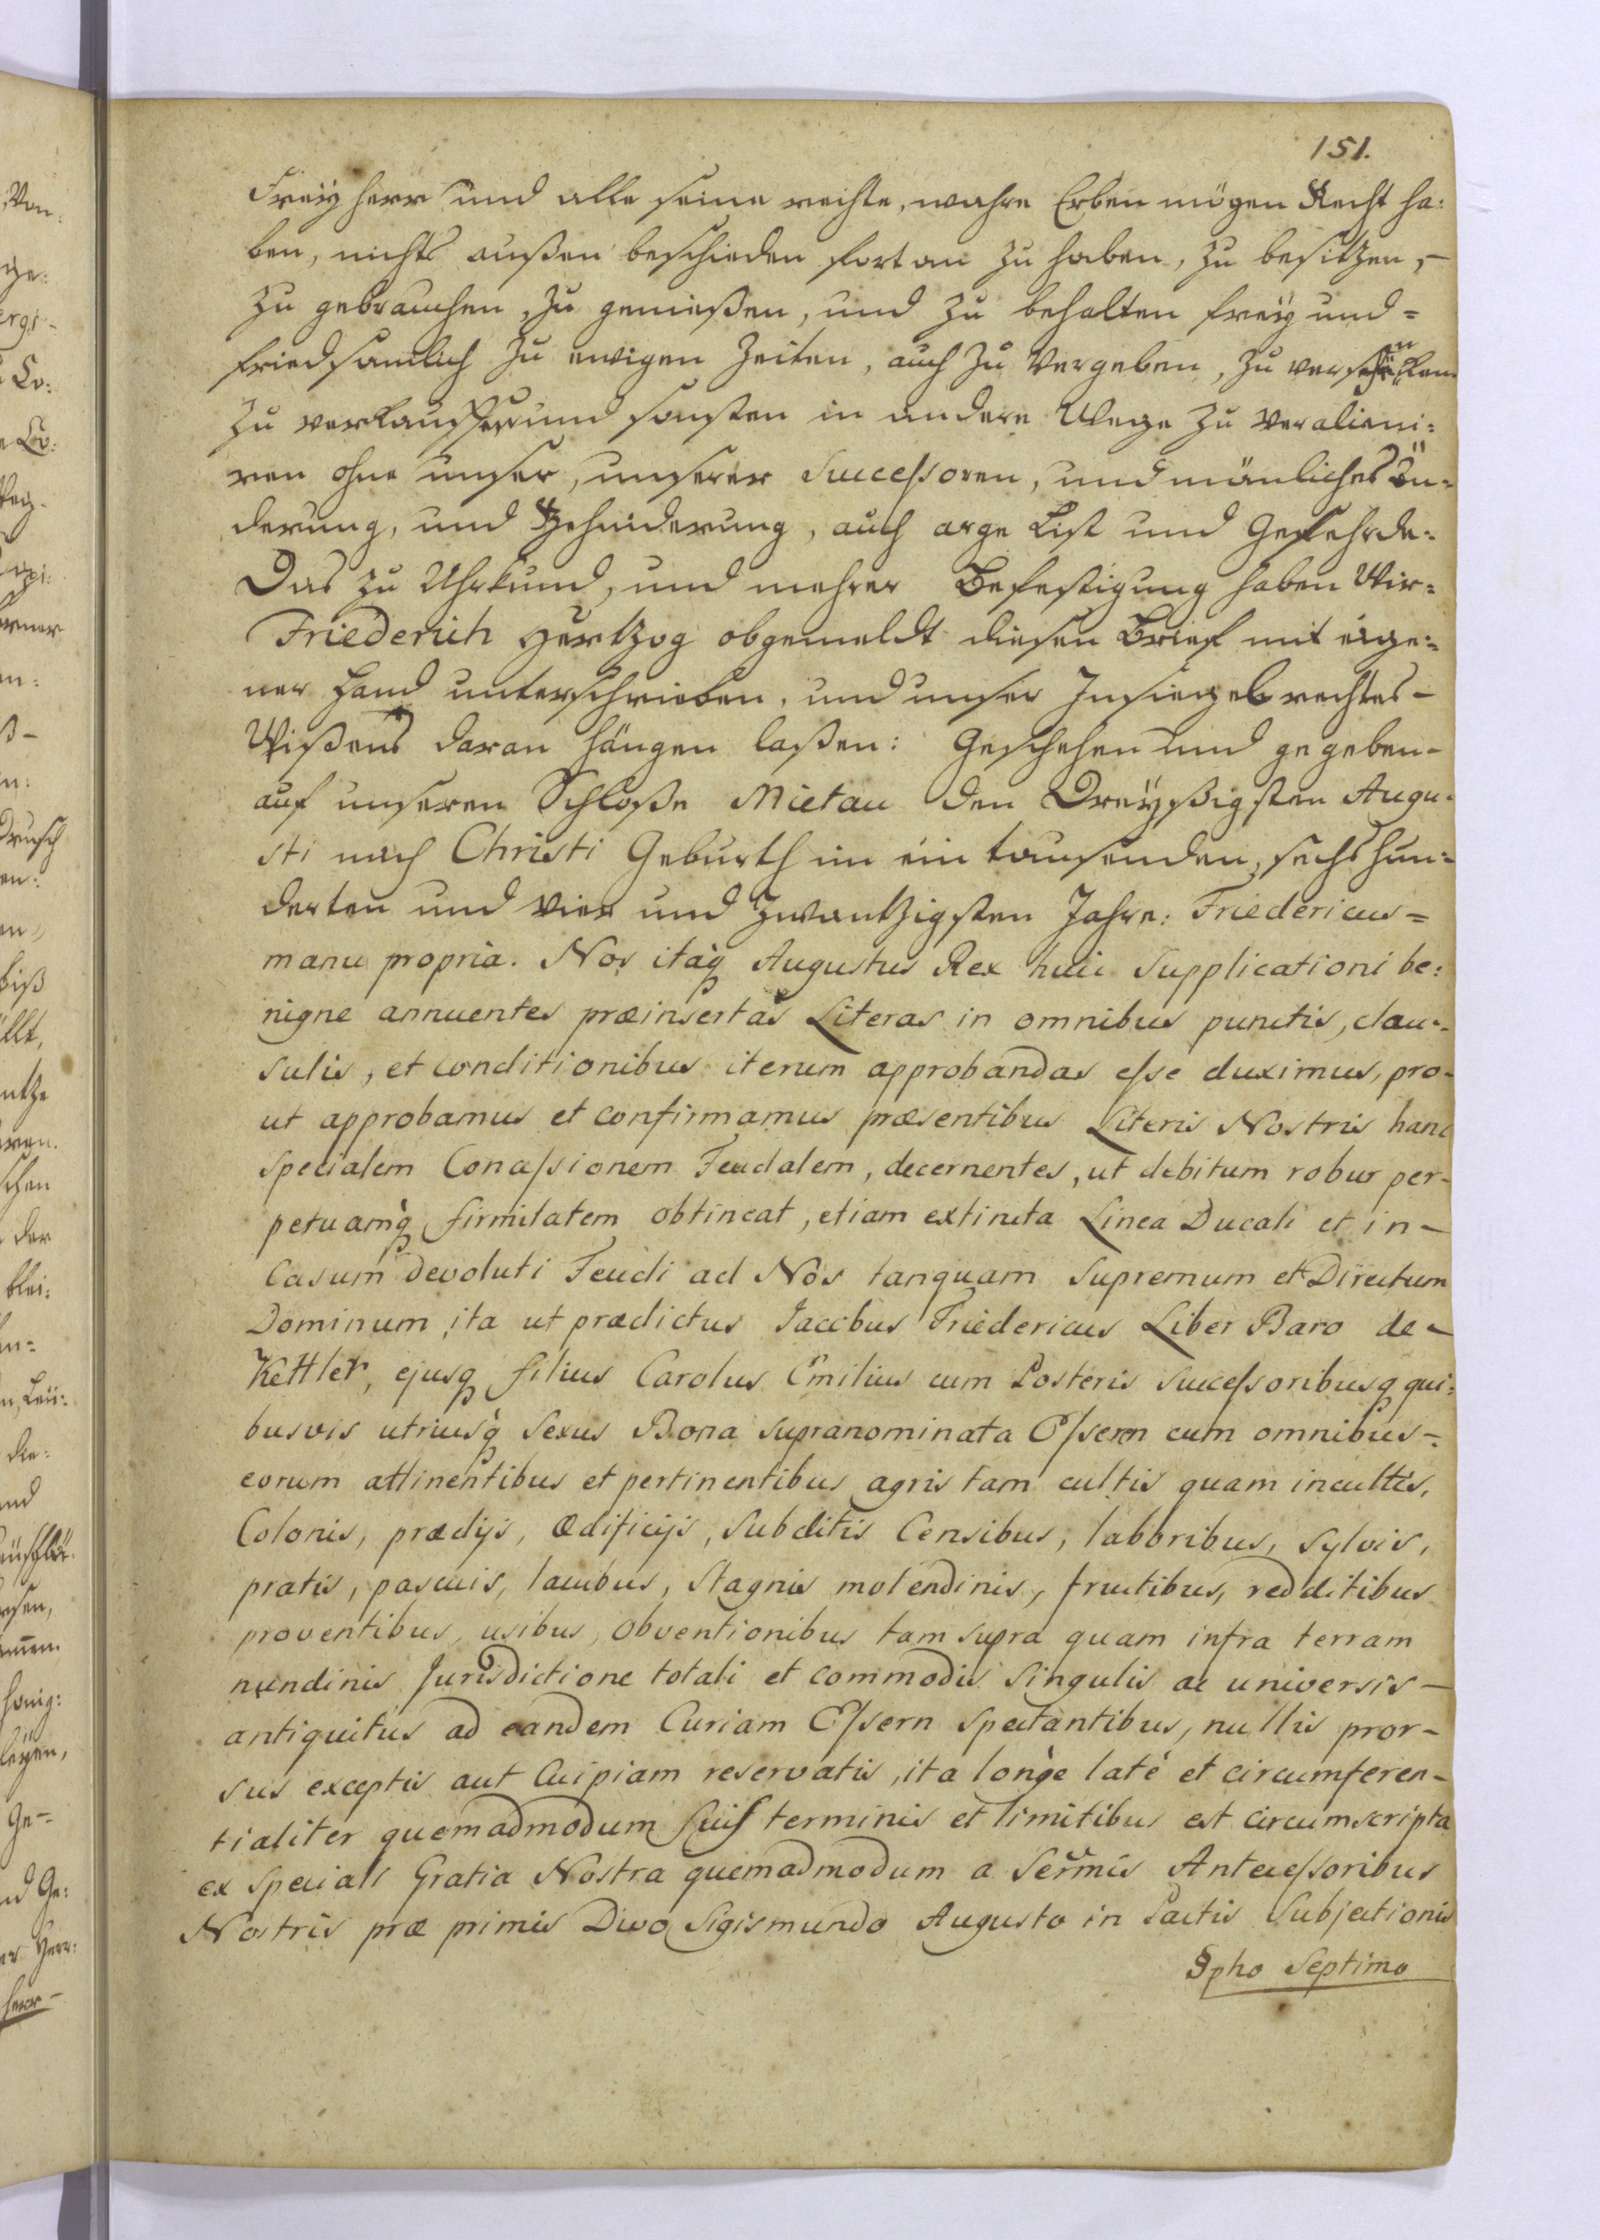 151.
Freyherr und alle seine rechte, wahre Erben mögen Recht ha:
ben, nichts außen beschieden fortan zu haben, zu besitzen,-
zu gebrauchen, zu genießen, und zu behalten frey und=
friedsamlich zu ewigen Zeiten, auch zu Vergeben, zu verschenken
zu verkauffen und sonsten in andere Wege zu veralieni:
ren ohne unser, unserer Successoren, und mäniliches
derung, und, auch arge List und Gefehrde.
Das zu Uhrkund, und mehrer Befestigung haben Wir=
Friederich Hertzog obgemeldt diesen Brief mit eige:
ner Hand unterschrieben, und unser Insiegel rechtes-
Wißens daran hängen laßen: Geschehen und gegeben-
auf unseren Schloße Mietau den Dreyßigsten Augu-
sti nach Christi Geburth im ein tausenden, sechs hun:
derten und vier und zwantzigsten Jahre: Friedericus=
manu propria. Nos itaq Augustus Rex huic Supplicationi be:
nigne annuentes præinsertas Literas in omnibus punctis, clau-
sulis, et conditionibus iterum approbandas esse duximus, pro-
ut approbamus et confirmamus præsentibus Literis Nostris hanc
specialem Concessionem Feudalem, decernentes, ut debitum robur per-
petuamq firmitatem obtineat, etiam extincta Linea Ducali et in-
Casum devoluti Feudi ad Nos tanquam Supremum et Directum
Dominum, ita ut prædictus Jacobus Friedericus Liber Baro de-
Kettler, ejusq filius Carolus Emilius cum Posteris Successoribusq qui:
busvis utriusq Sexus Bona supranominata Essern cum omnibus-
eorum attinentibus et pertinentibus agris tam cultis quam incultis,
Colonis, prædijs, ædificijs, Subditis Censibus, laboribus, Sylvis,
pratis, pascuis, lacubus, Stagnis molendinis, fructibus, redditibus
proventibus, usibus, obventionibus tam supra quam infra terram
nundinis Jurisdictione totali et commodis singulis ac universis-
antiquitus ad eandem Curiam Essern spectantibus, nullis pror-
sus exceptis aut Cuipiam reservatis, ita longè laté et circumferen-
tialiter quemadmodum suis terminis et limitibus est circumscripta
ex speciali Gratia Nostra quemadmodum a Sermis Antecessoribus
Nostris præ primis Divo Sigismundo Augusto in Pactis Subjectionis
§pho Septimo